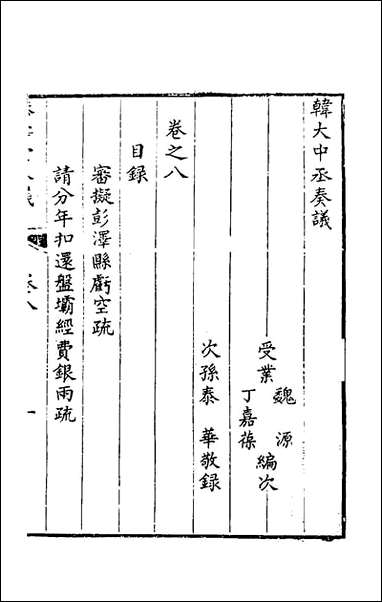 韓大中丞奏議
受業
魏源
丁嘉葆
編次
次孫泰華敬録
卷之八
目録
審擬彭澤縣虧空疏
請分年扣還盤壩經費銀兩疏